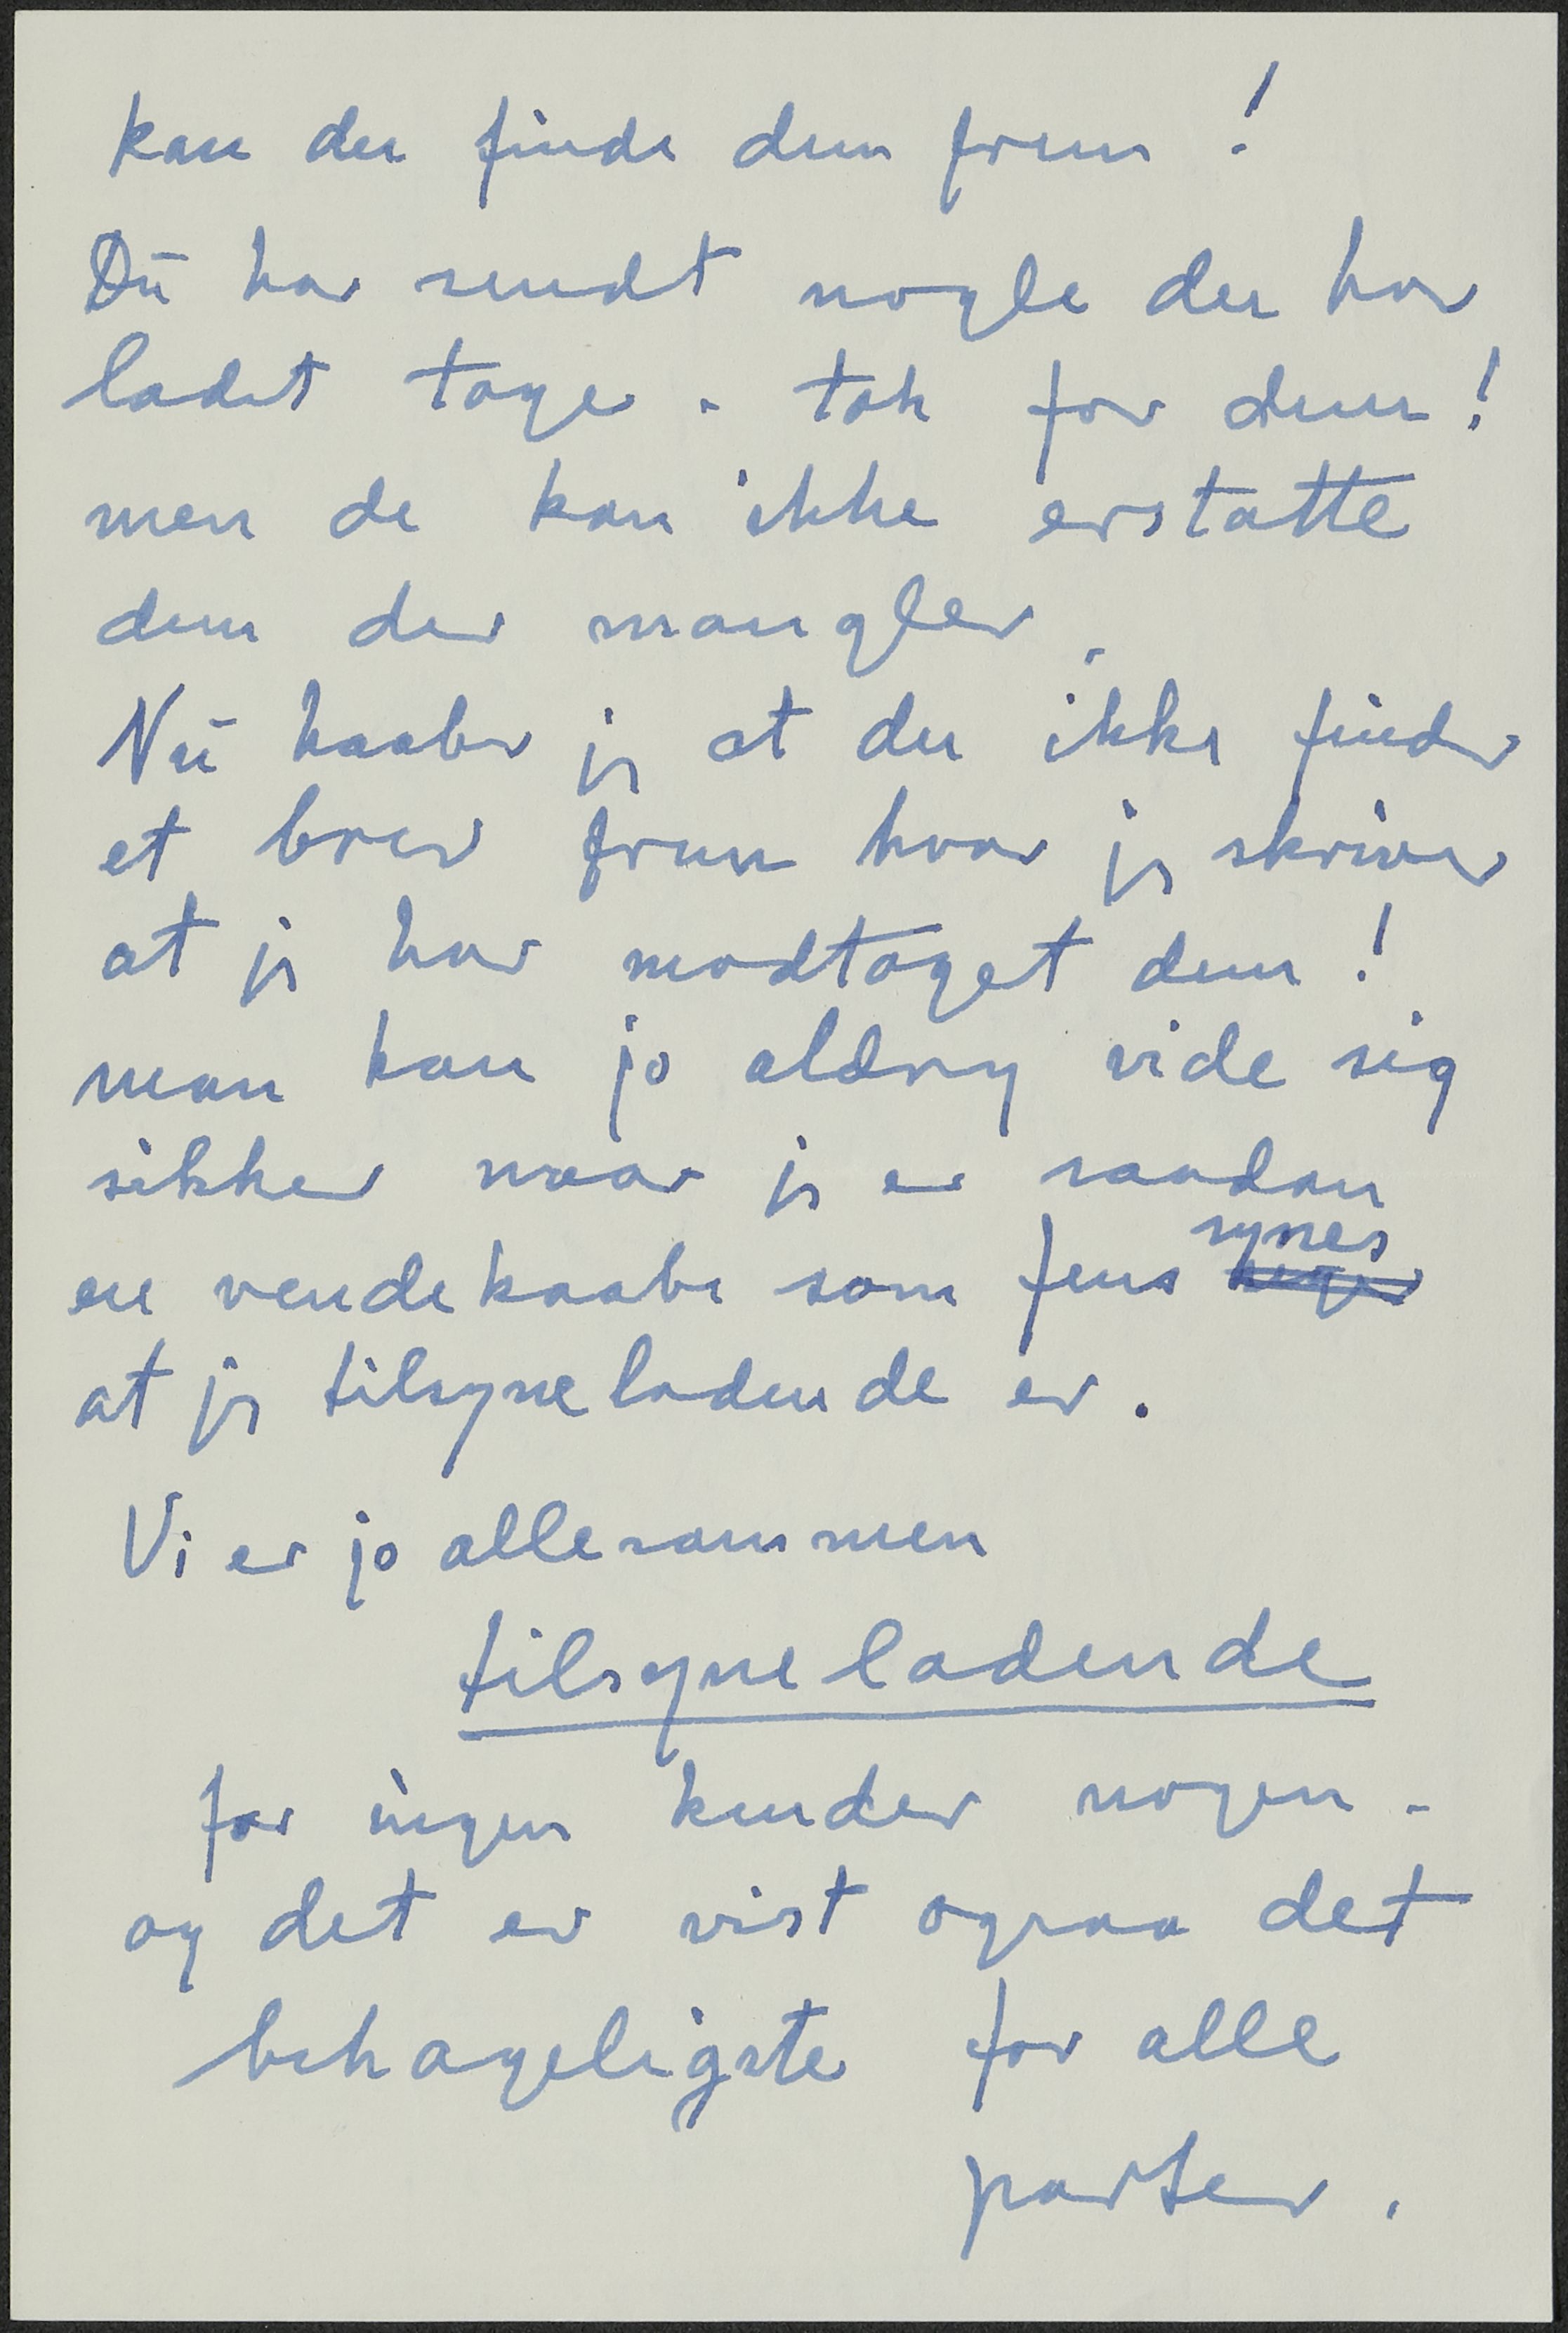 kan du finde dem frem!
Du har sendt nogle du har
ladet tage. tak for dem!
men de kan ikke erstatte
dem der mangler.
Nu haaber jeg at du ikke finder
et brev frem hvor jeg skriver
at jeg har modtaget dem!
man kan jo aldrig vide sig
sikker naar jeg er saadan
en vendekaabe som fens synes
at jeg tilsyneladende er.
Vi er jo allesammen
tilsyneladende
for ingen kender nogen.
og det er vist ogsaa det
behageligste for alle
parter.